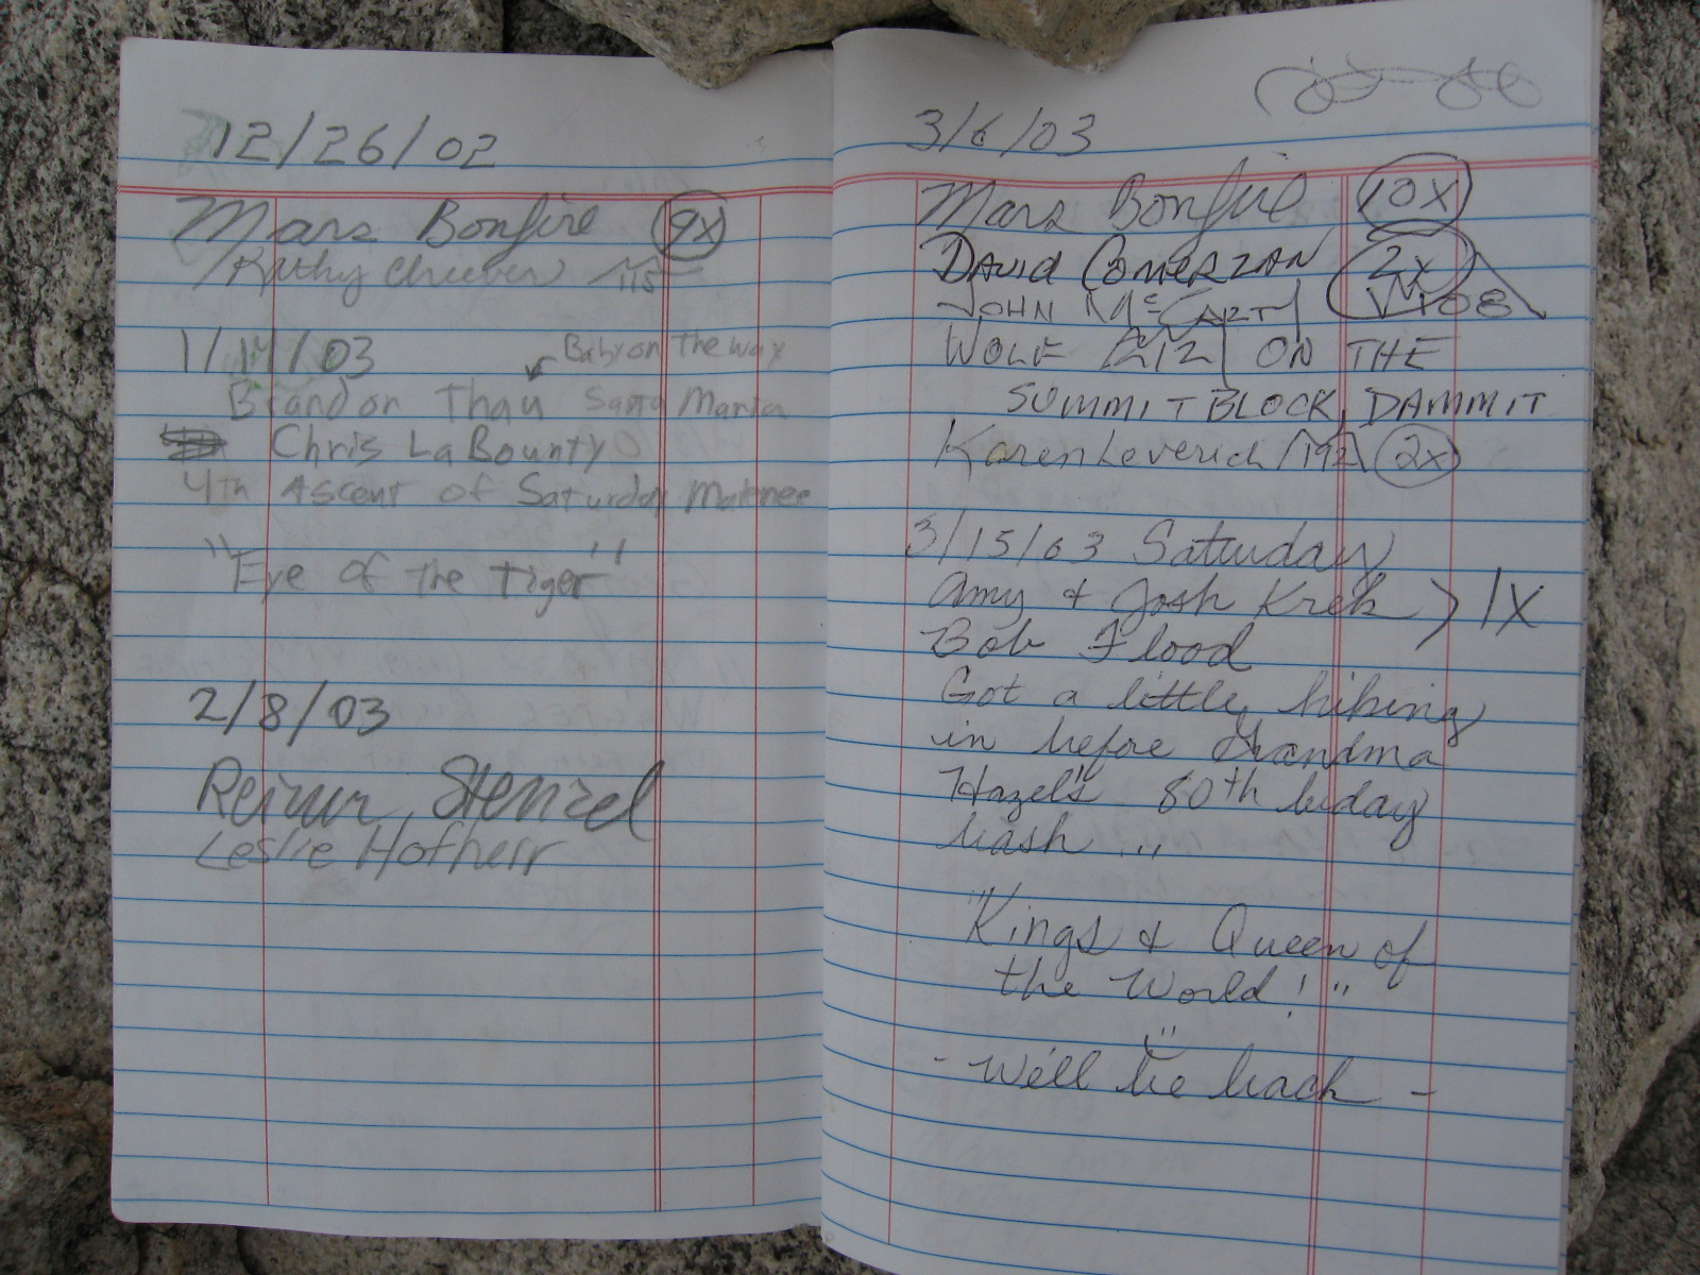 12/26/02
Mars Bonfire 9x
Kathy Cheever 115
1/14/03 Baby on The way
Brandon Thau Santa Maria
Chris LaBounty
4th Ascent of Saturday Matinee
"Eye of The Tiger"
2/8/03
Reiner Stenzel
Leslie Hofherr
3/6/03
Mars Bonfire 10x
DAVID COMERZAN 2x
JOHN McCARTY 108
WOLF 212 ON THE
SUMMIT BLOCK, DAMMIT
Karen Leverich 192 2x
3/15/03 Saturday
Amy & Josh Kreb > 1X
Bob Flood
Got a little hiking
in before Grandma
Hazel's 80th b-day
bash ..
"Kings & Queen of
the World!"
- We'll be back -